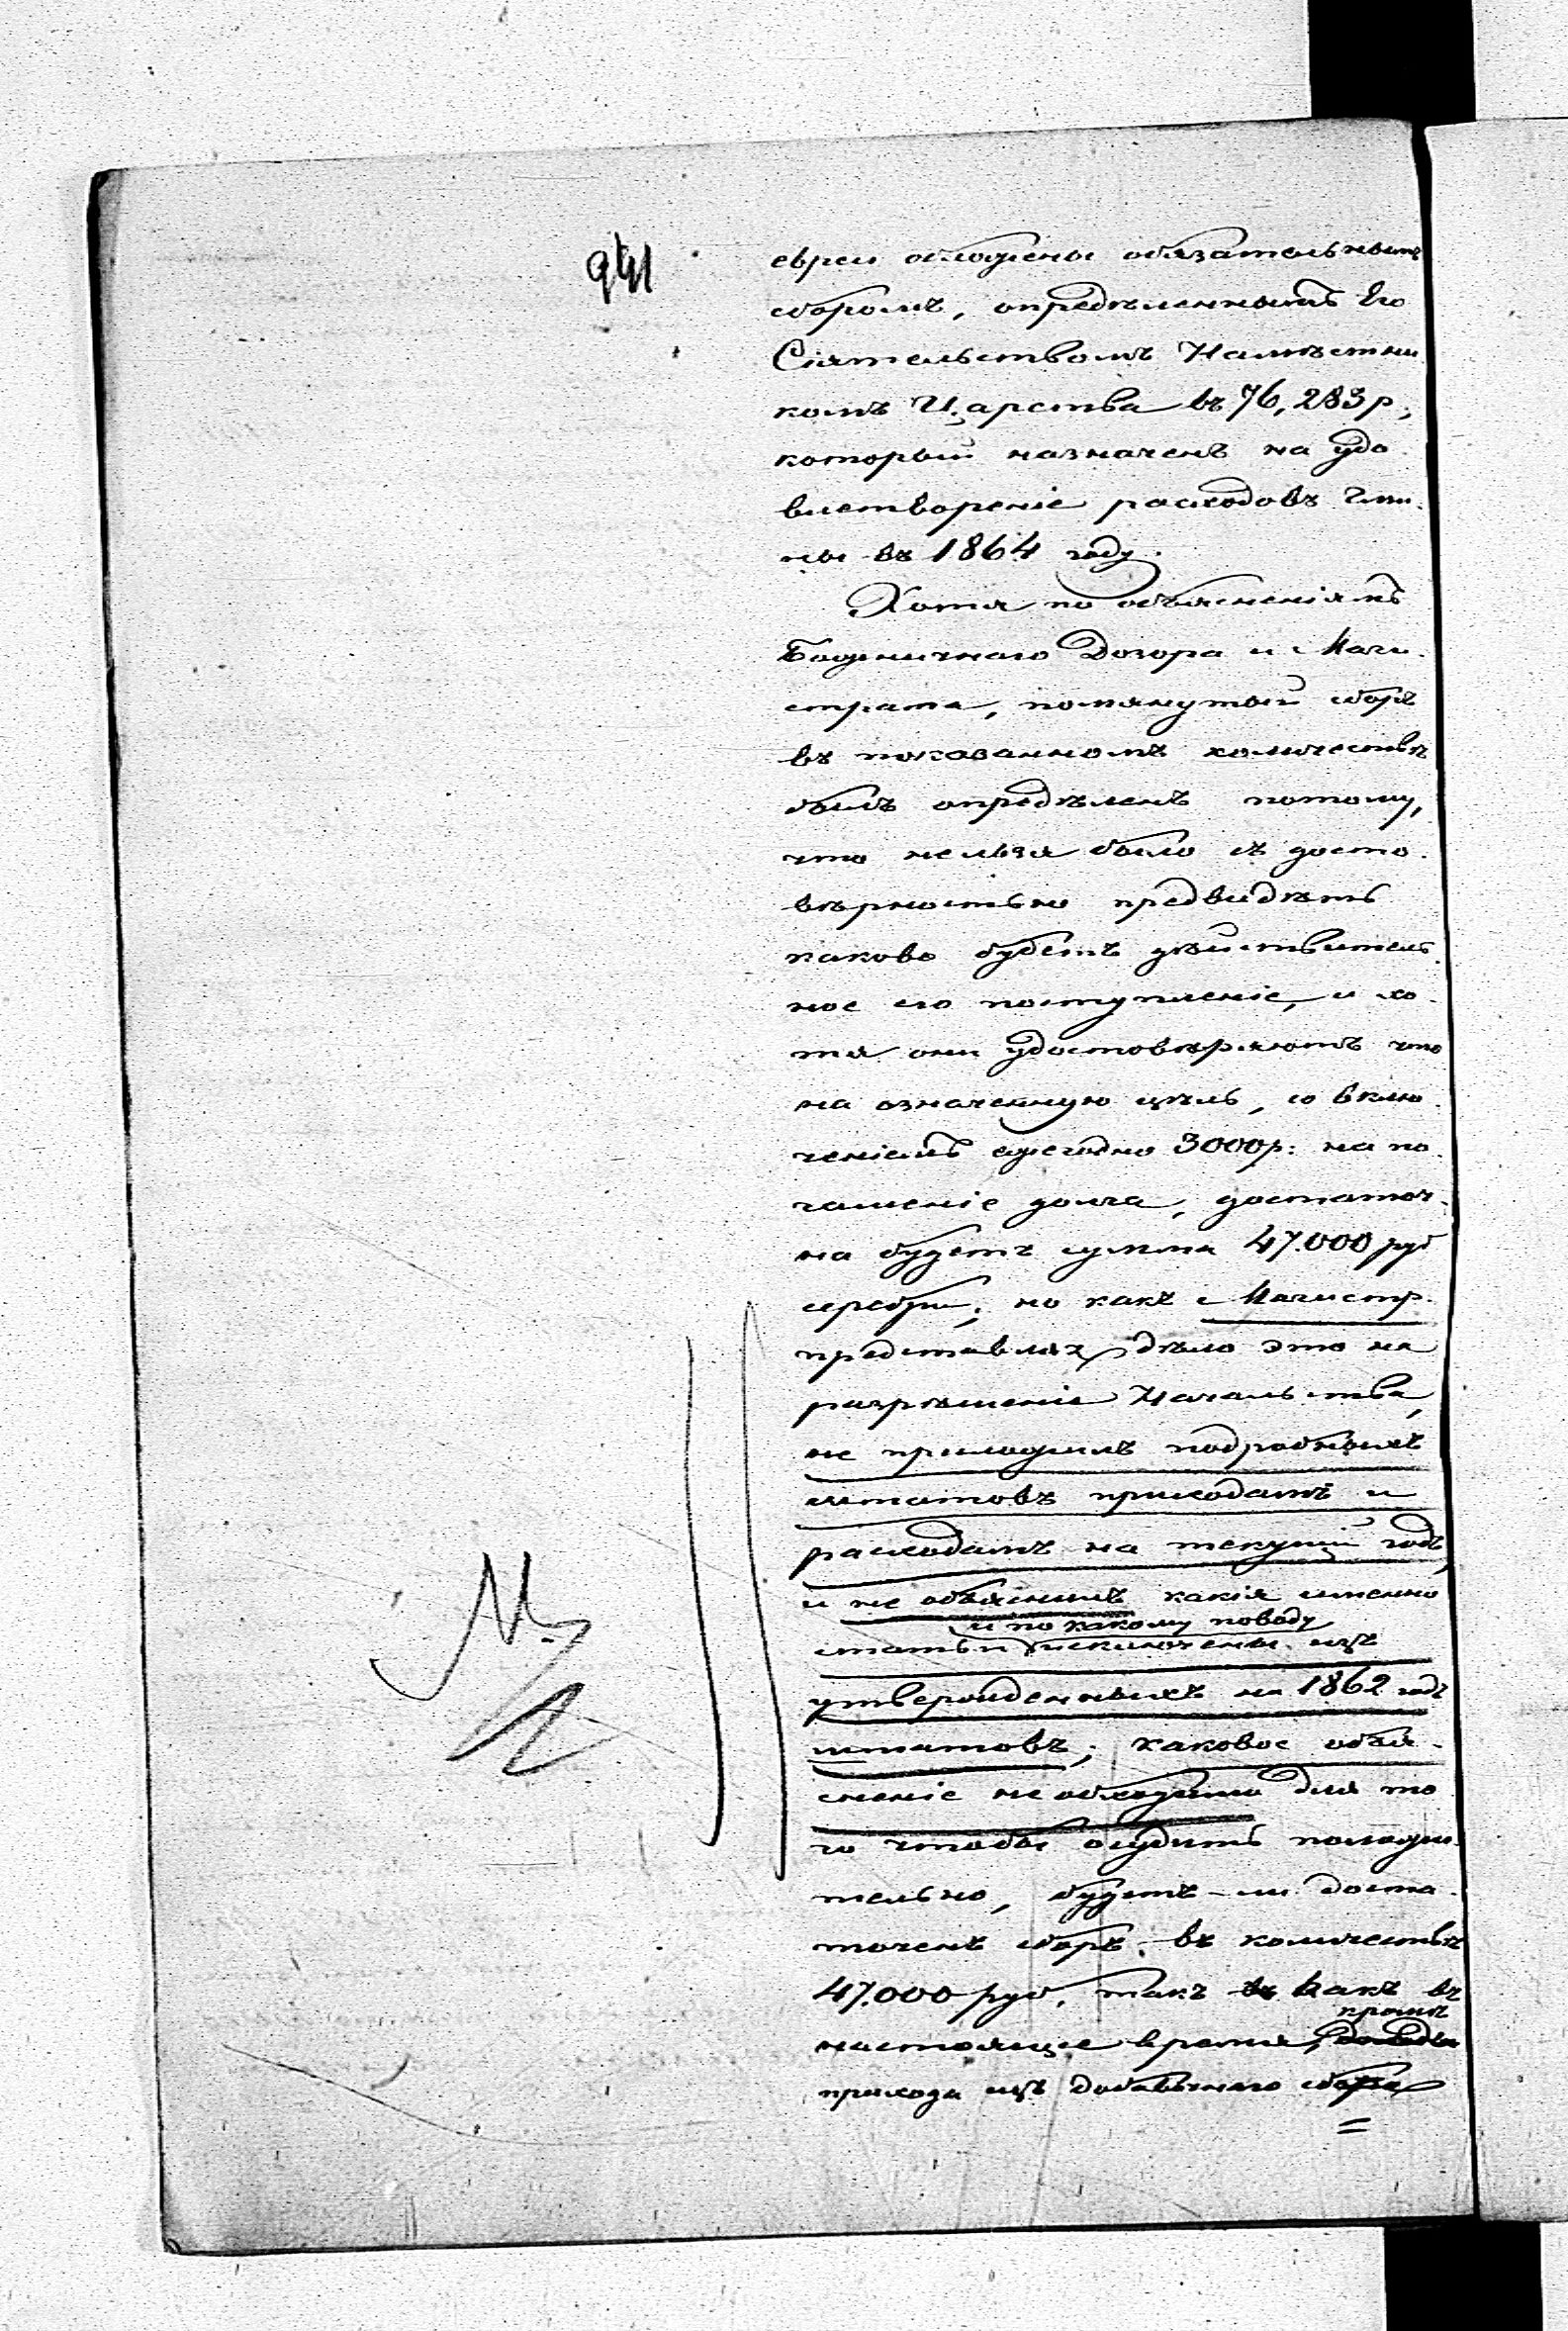 941
евреи обложены обязательнымъ
сборомъ, опредѣленнымъ Его
Сіятельствомъ Намѣстни
комъ Царства въ 76,283 р,
который назначенъ на удо
влетвореніе расходовъ Гми-
ны въ 1864 году.
Хотя по объясненіямъ
Божничнаго Дозора и Маги-
страта, помянутый сборъ
въ показанномъ количествѣ
былъ опредѣленъ потому,
что нельзя было съ досто-
вѣрностью предвидѣть
каково будетъ дѣйствитель
ное его поступленіе, и хо-
тя они удостовѣряютъ что
на означенную цѣль, со вклю-
ченіемъ ежегодно 3000 р. на по-
гашеніе долга, достаточ-
на будетъ сумма 47.000 руб
серебр.; но какъ Магистр.
представляя дѣло это на
разрѣшеніе Начальства,
не приложилъ подробныхъ
штатовъ приходамъ и
расходамъ на текущій годъ,
и не объяснилъ какія именно
и по какому поводу
статьи исключены изъ
утвержденныхъ на 1862 годъ
штатовъ; каковое объя-
сненіе необходимо для то
го чтобы осудить положи-
тельно, будетъ-ли доста-
точенъ сборъ въ количествѣ
47.000 руб. такъ въ какъ въ
кромѣ
настоящее время,
прихода изъ добавочнаго сбора